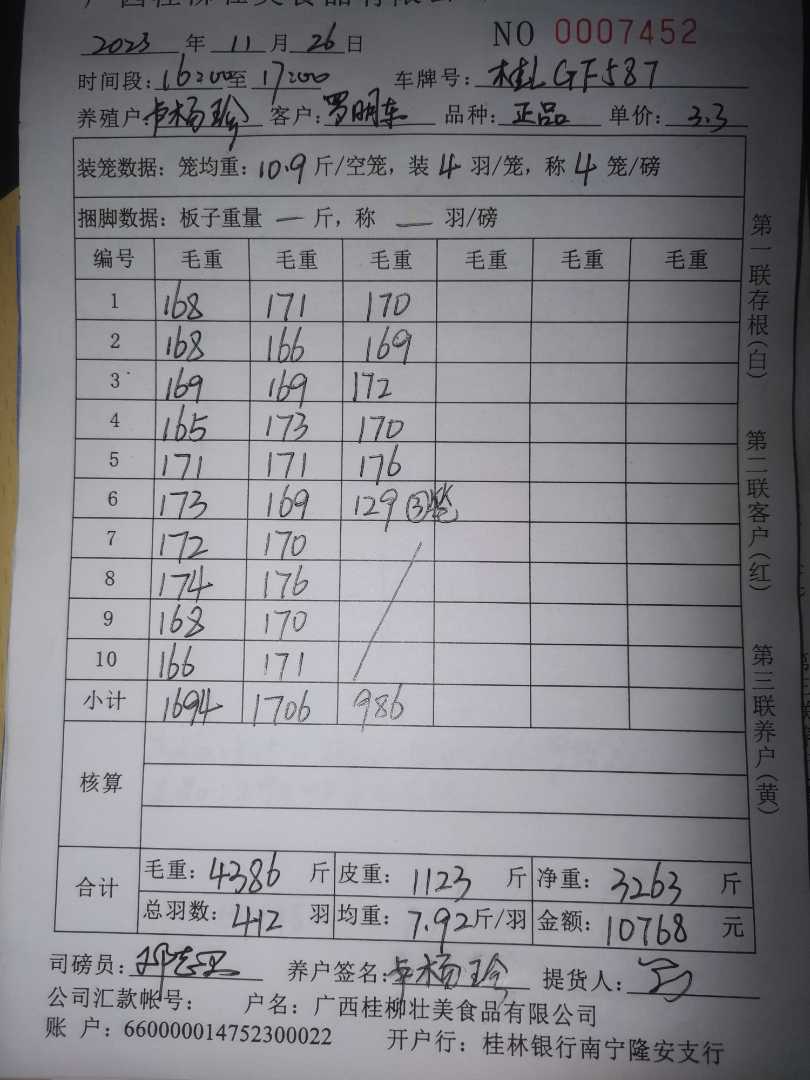 2023 年 11 月 26 日 NO 0007452
时间段: 16:00 至 17:00 车牌号: 桂L GF587
养殖户 卢杨珍 客户: 罗明东 品种: 正品 单价: 3.3
装笼数据: 笼均重: 10.9 斤/空笼, 装 4 羽/笼, 称 4 笼/磅
捆脚数据: 板子重量 — 斤, 称 — 羽/磅
编号 毛重 毛重 毛重 毛重 毛重 毛重
1 168 171 170
2 168 166 169
3 169 169 172
4 165 173 170
5 171 171 176
6 173 169 129 ③笼
7 172 170
8 174 176
9 168 170
10 166 171
小计 1694 1706 986
核算
合计 毛重: 4386 斤 皮重: 1123 斤 净重: 3263 斤
总羽数: 412 羽 均重: 7.92 斤/羽 金额: 10768 元
司磅员: 养户签名: 卢杨珍 提货人:
公司汇款帐号: 户名: 广西桂柳壮美食品有限公司
账 户: 660000014752300022 开户行: 桂林银行南宁隆安支行
第一联存根(白)
第二联客户(红)
第三联养户(黄)